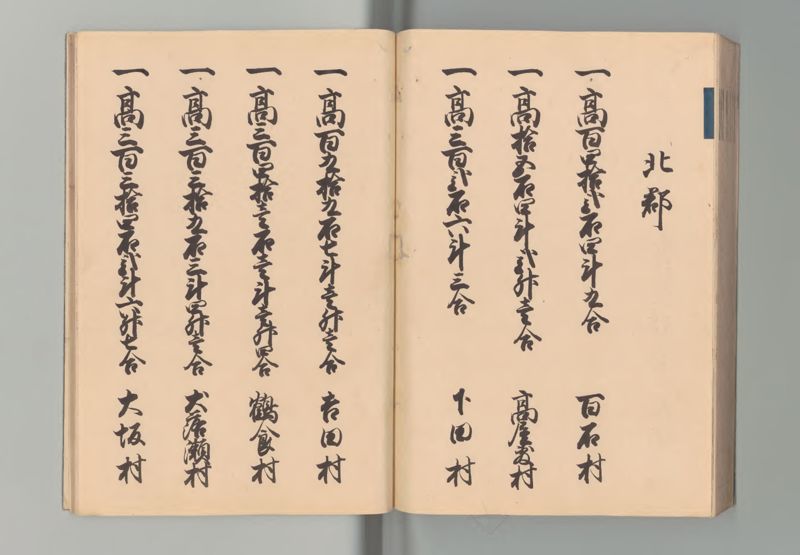 北郡
一高百四拾弐石四斗九合 百石村
一高拾五石四斗弐升壱合 高屋敷村
一高三百弐石六斗三合 下田村
一高百九拾九石七斗壱升壱合 吉田村
一高三百四拾壱石壱斗壱升四合 鶴食村
一高三百三拾九石三斗四升壱合 犬落瀬村
一高三百三拾四石弐斗六升七合 大坂村